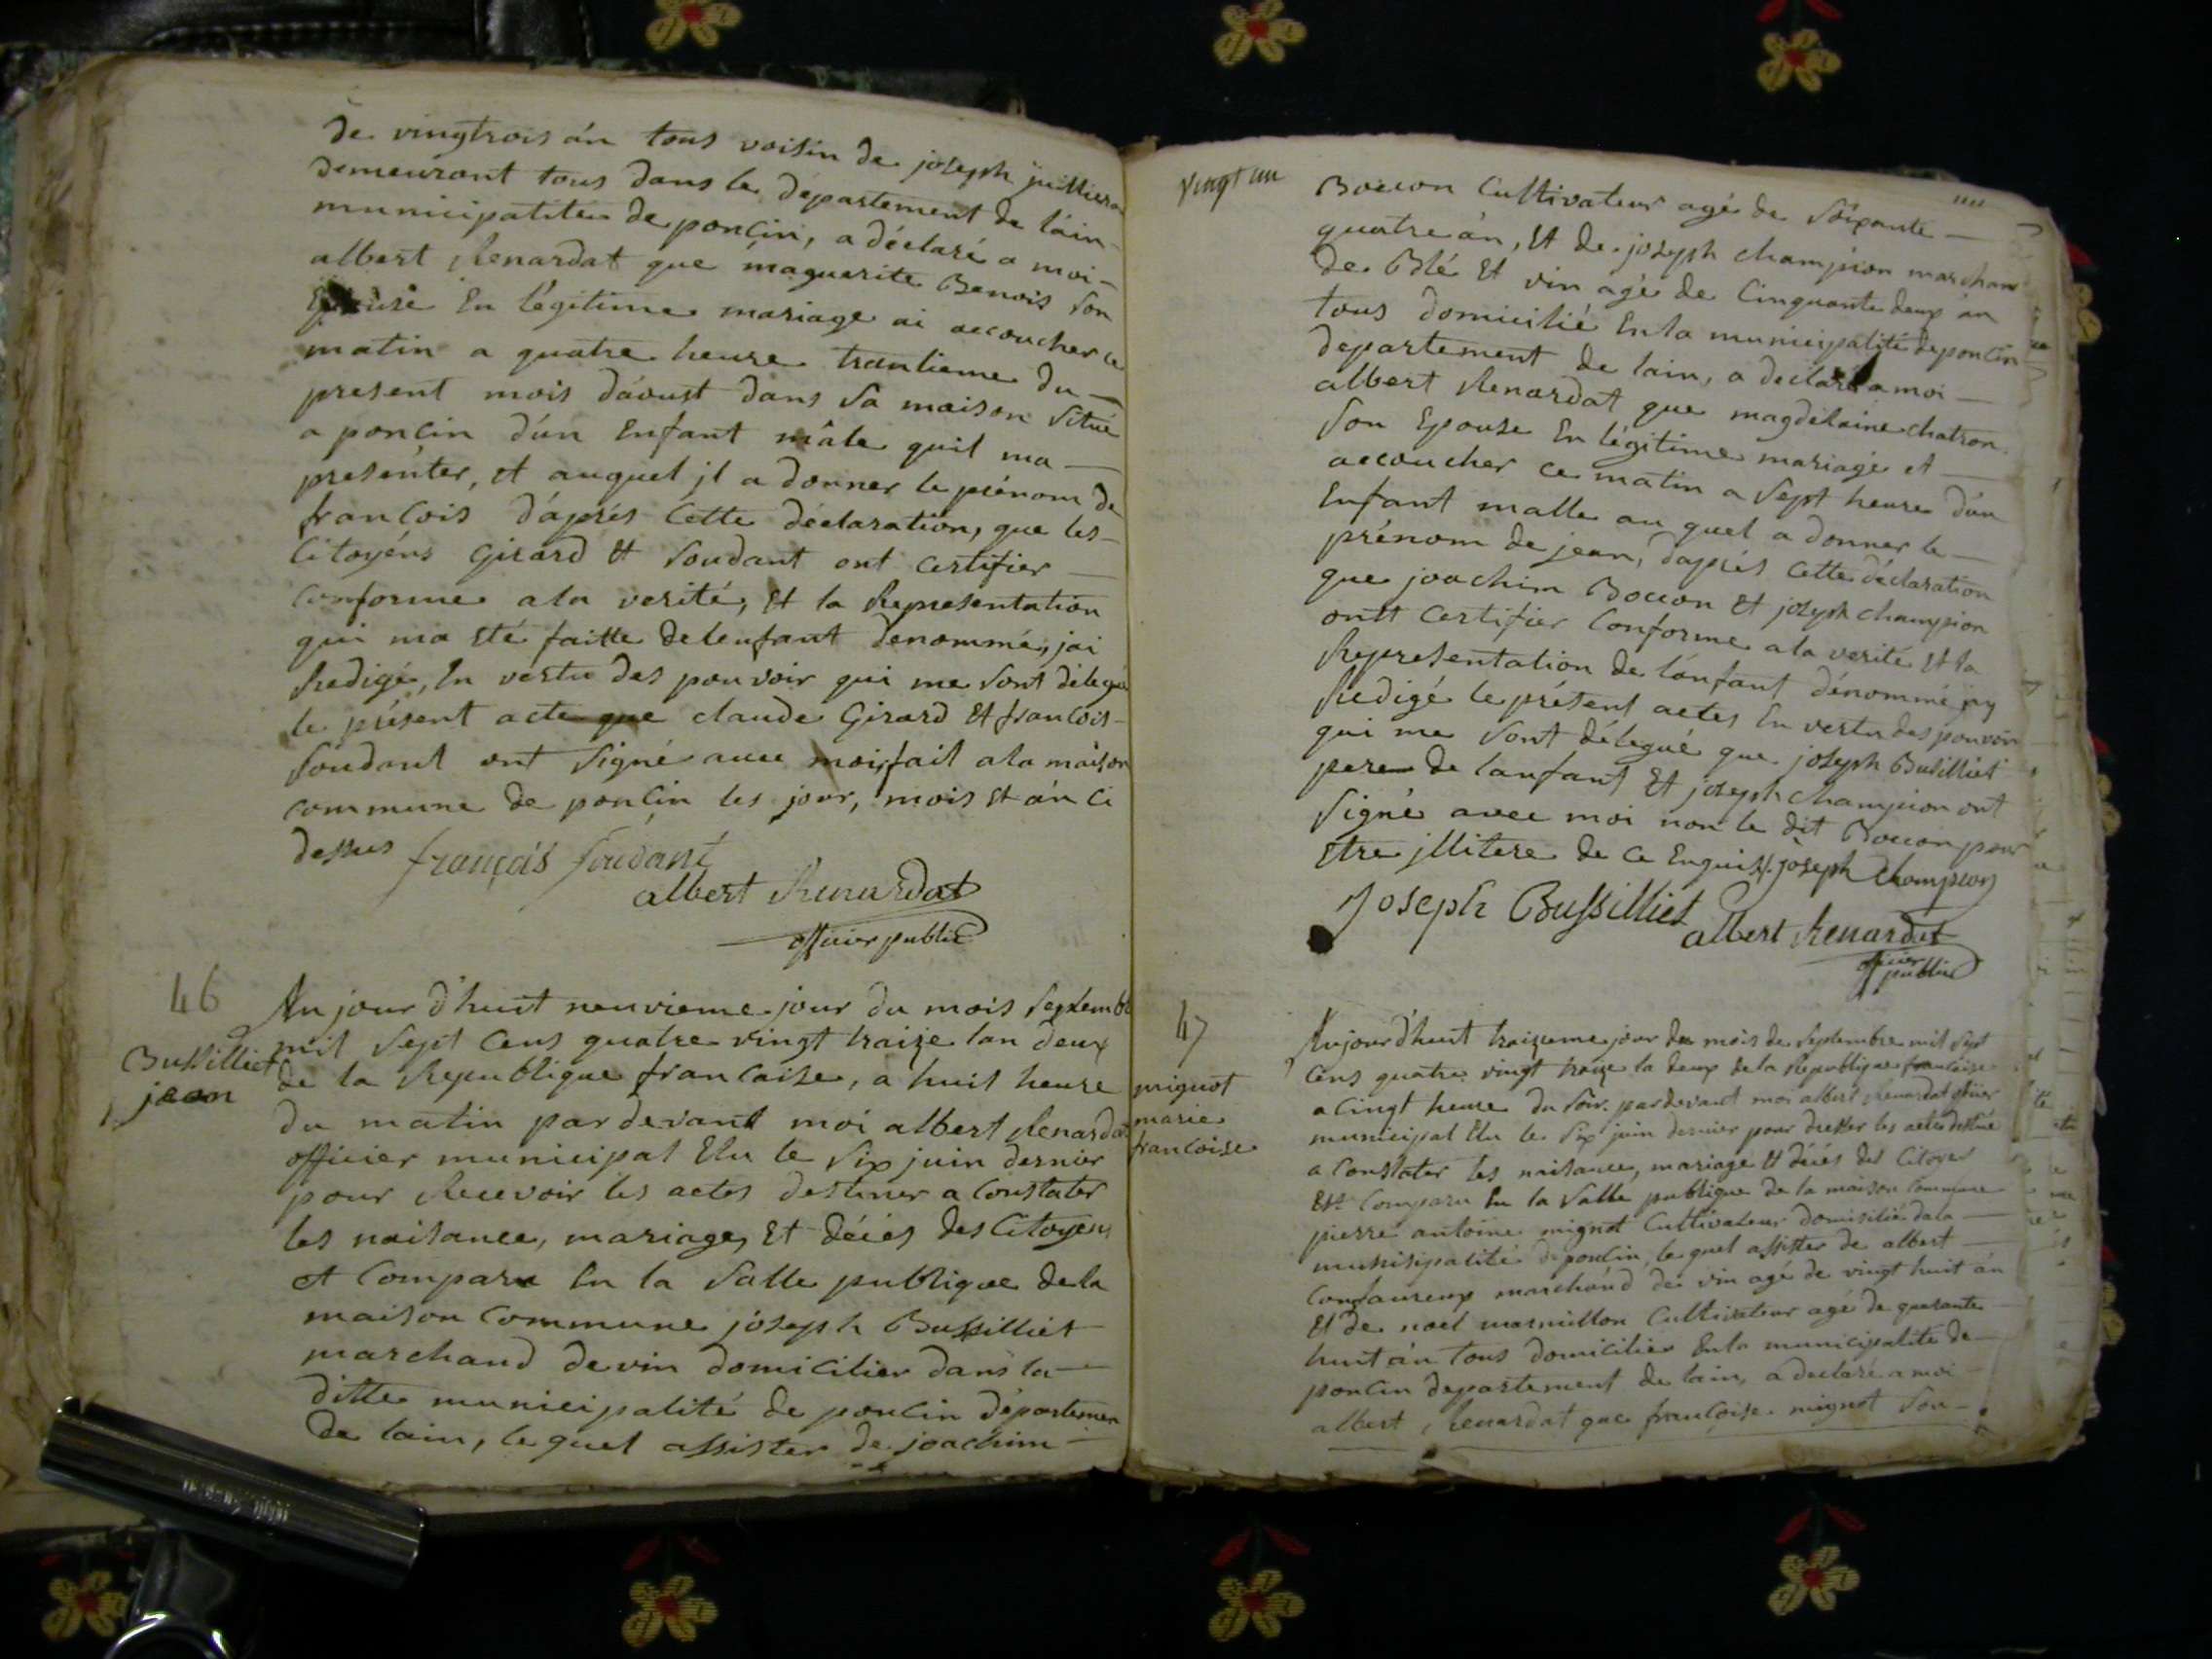 de vingtrois án tous voisin de joseph juillieron
demeurant tous dans le département de láin
municipalitée de poncin, a déclaré a moi
albert Renardat que maguerite Benois son
Epouse En légitime mariage ai accoucher ce
matin a quatre heure trantieme du
present mois dáoust dans sa maison situé
a poncin dún Enfant mâle quil ma
presénter, et auquel jl a donner le prénom de
francois dáprés cette déclaration, que les
Citoyéns Girard Et Soudant ont certifier
conforme ala verité, Et la Representation
qui ma Eté faitte delenfant denommé, jai
Redigé, En vertu des pouvoir qui me sont délegué
le présent acte que claude Girard Et francois
Soudant ont signé avec moi, fait ala maison
commune de poncin les jour, mois Et án ci
dessus
françois Soudant
albert Renardat
officier public
46
Bussilliet
jean
Aujourd'huit neuvieme jour du mois Septembre
mil sept Cens quatre vingt traize lan deux
de la Republique francaise, a huit heure
du matin pardevant moi albert Renardat
officier municipal Elu le six juin dernier
pour Recevoir les actes destiner a Constater
les naisance, mariage, Et décés des Citoyens
Et Comparu En la Salle publique dela
maison Commune joseph Bussilliet
marchand devin domicilier dans la
ditte municipalité de poncin département
de lain, le quel assister de joachim
vingt un
Boccon Cultivateur agé de Soixante
quatre án, Et de joseph champion marchand
de Blé Et vin agé de Cinquante deux án
tous domicilié En la municipalité de poncin
département de lain, a déclaré a moi
albert Renardat que magdelaine chatron
son Epouse En légitime mariage et
accoucher ce matin a sept heure dún
Enfant malle au quel a donner le
prénom de jean, dáprés cette déclaration
que joachim Boccon Et joseph champion
ontt certifier Conforme ala verité Et la
Representation de lénfant dénommé jay
Redigé le présent actes En vertu des pouvoir
qui me sont délegué que joseph Busilliet
pere de lanfant Et joseph champion ont
signé avec moi non le dit Boccon pour
Etre jllitere de ce Enquis. joseph Champion
Joseph Bussilliet
albert Renardat
officier
public
47
mignot
marie
francoise
Aujourd'huit traizieme jour du mois de Septembre mil sept
Cens quatre vingt traize la deux de la Republique francaise
a cinqt heure du soir pardevant moi albert Renardat officier
municipal Elu le six juin dernier pour dresser les actes destiné
a Constater les naisance, mariage Et décés des Citoyen
Est Comparu En la Salle publique de la maison Commune
pierre antoine mignot Cultivateur domisilié dala
munisipalité de poncin, le quel assister de albert
marchand de vin agé de vingt huit án
Et de noel marmillon Cultivateur agé de quarante
huit án tous domicilier En la municipalité de
poncin departement de lain, a declaré a moi
albert Renardat que françoise mignot son